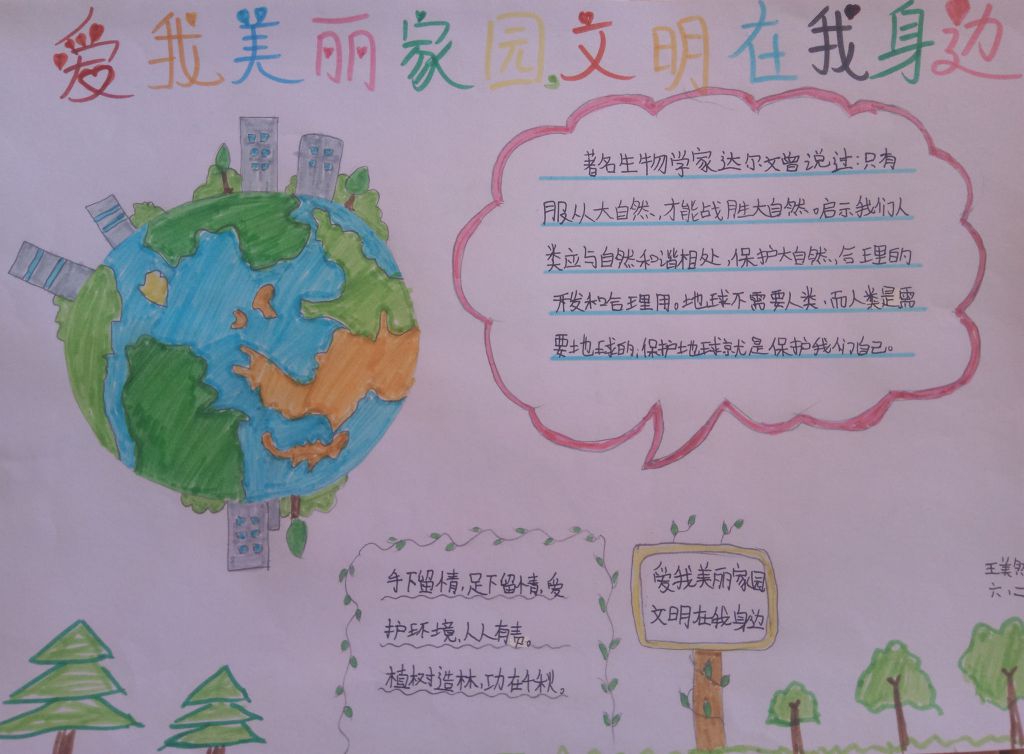 爱我美丽家园,文明在我身边
著名生物学家达尔文曾说过:只有
服从大自然,才能战胜大自然。启示我们人
类应与自然和谐相处,保护大自然,合理的
开发和合理用。地球不需要人类,而人类是需
要地球的,保护地球就是保护我们自己。
手下留情,足下留情,爱
护环境,人人有责。
植树造林,功在千秋。
爱我美丽家园
文明在我身边
王美然
六、二